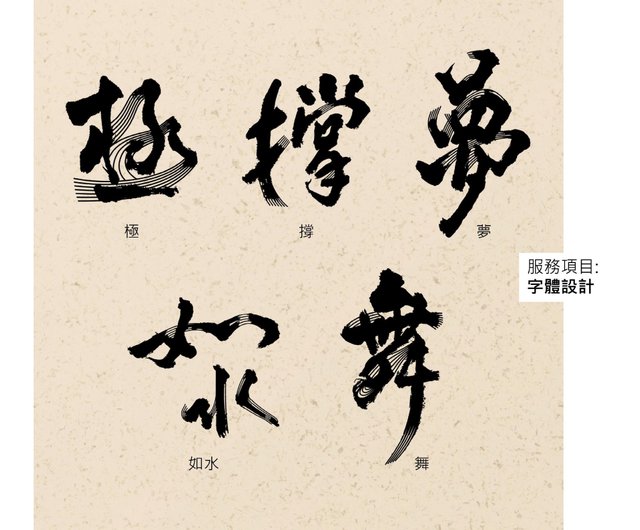 極 撐 夢
極 撐 夢
服務項目:
字體設計
如 舞
水
如水 舞